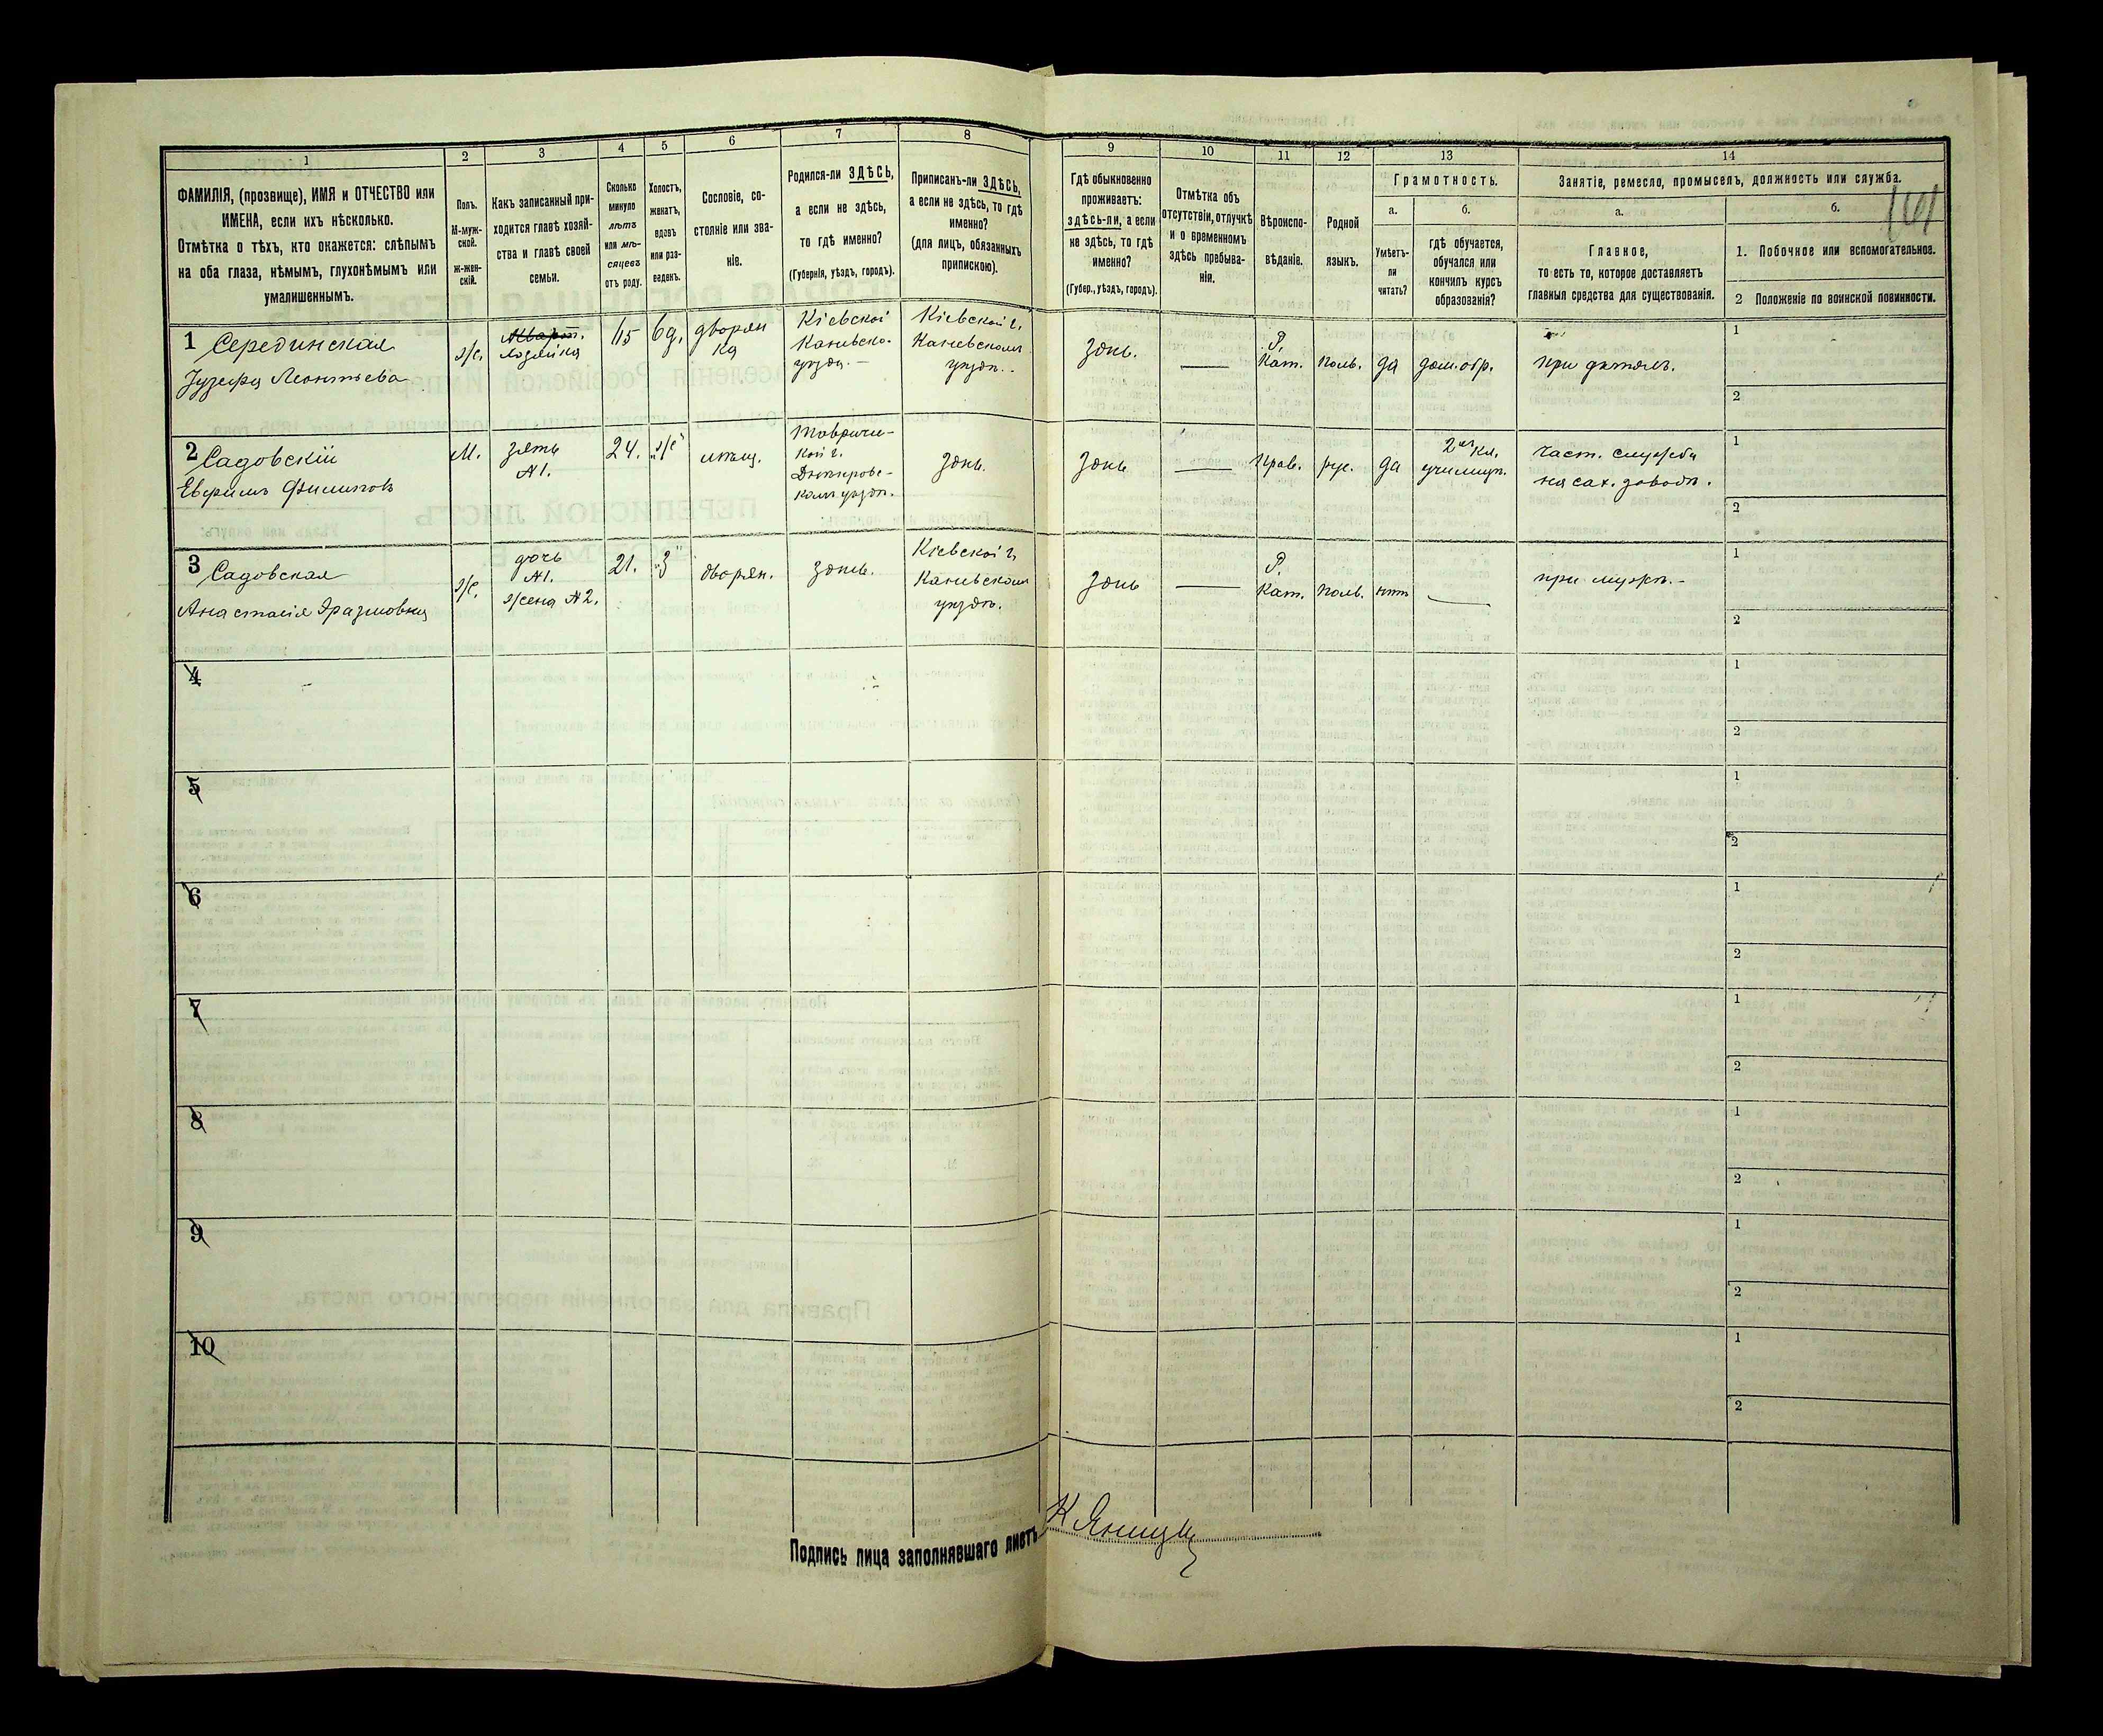 1
2
3
4
5
6
7
8
9
10
11
12
13
14
ФАМИЛІЯ, (прозвище), ИМЯ и ОТЧЕСТВО или
ИМЕНА, если ихъ нѣсколько.
Отмѣтка о тѣхъ, кто окажется: слѣпымъ
на оба глаза, нѣмымъ, глухонѣмымъ или
умалишеннымъ.
Полъ.
М-муж-
ской.
ж-жен-
скій.
Какъ записанный при-
ходится главѣ хозяй-
ства и главѣ своей
семьи.
Сколько
минуло
лѣтъ
или мѣ-
сяцевъ
отъ роду.
Холостъ,
женатъ,
вдовъ
или раз-
веденъ.
Сословіе, со-
стояніе или зва-
ніе.
Родился-ли ЗДѢСЬ,
а если не здѣсь,
то гдѣ именно?
(Губернія, уѣздъ, городъ).
Приписанъ-ли ЗДѢСЬ,
а если не здѣсь, то гдѣ
именно?
(для лицъ, обязанныхъ
припискою).
Гдѣ обыкновенно
проживаетъ:
здѣсь-ли, а если
не здѣсь, то гдѣ
именно?
(Губер., уѣздъ, городъ).
Отмѣтка объ
отсутствіи, отлучкѣ
и о временномъ
здѣсь пребыва-
ніи.
Вѣроиспо-
вѣданіе.
Родной
языкъ.
Грамотность.
а.
Умѣетъ-
ли
читать?
б.
гдѣ обучается,
обучался или
кончилъ курсъ
образованія?
Занятіе, ремесло, промыселъ, должность или служба.
а.
Главное,
то есть то, которое доставляетъ
главныя средства для существованія.
б.
161
1. Побочное или вспомогательное.
2 Положеніе по воинской повинности.
1 Серединская
Іузефа Леонтьева
ж.
хозяйка
вд.
дворян
ка
Кіевской
Каневско.
уѣзда.
Кіевской г.
Каневскомъ
уѣздѣ.
здѣсь.
Р.
Кат.
поль.
да
дом. обр.
при дѣтяхъ.
1
2
2 Садовскій
Ефимъ Филиповъ
М.
зять
№1.
24.
ж
мѣщ.
Тавриче-
кой г.
Днѣпровс-
комъ уѣздѣ.
здѣсь.
здѣсь
—
Прав.
рус.
да
2хъ кл.
училищѣ.
част. служба
на сах. заводѣ.
1
2
3 Садовская
Анастасія Эразмовна
ж.
дочь
№1.
жена №2.
21.
з
дворян.
здѣсь.
Кіевской г.
Каневскомъ
уѣздѣ.
здѣсь
—
Р.
Кат.
поль.
нѣтъ
—
при мужѣ.-
1
2
4
1
2
5
1
2
6
1
2
7
1
2
8
1
2
9
1
2
10
1
2
Подпись лица заполнявшаго листъ